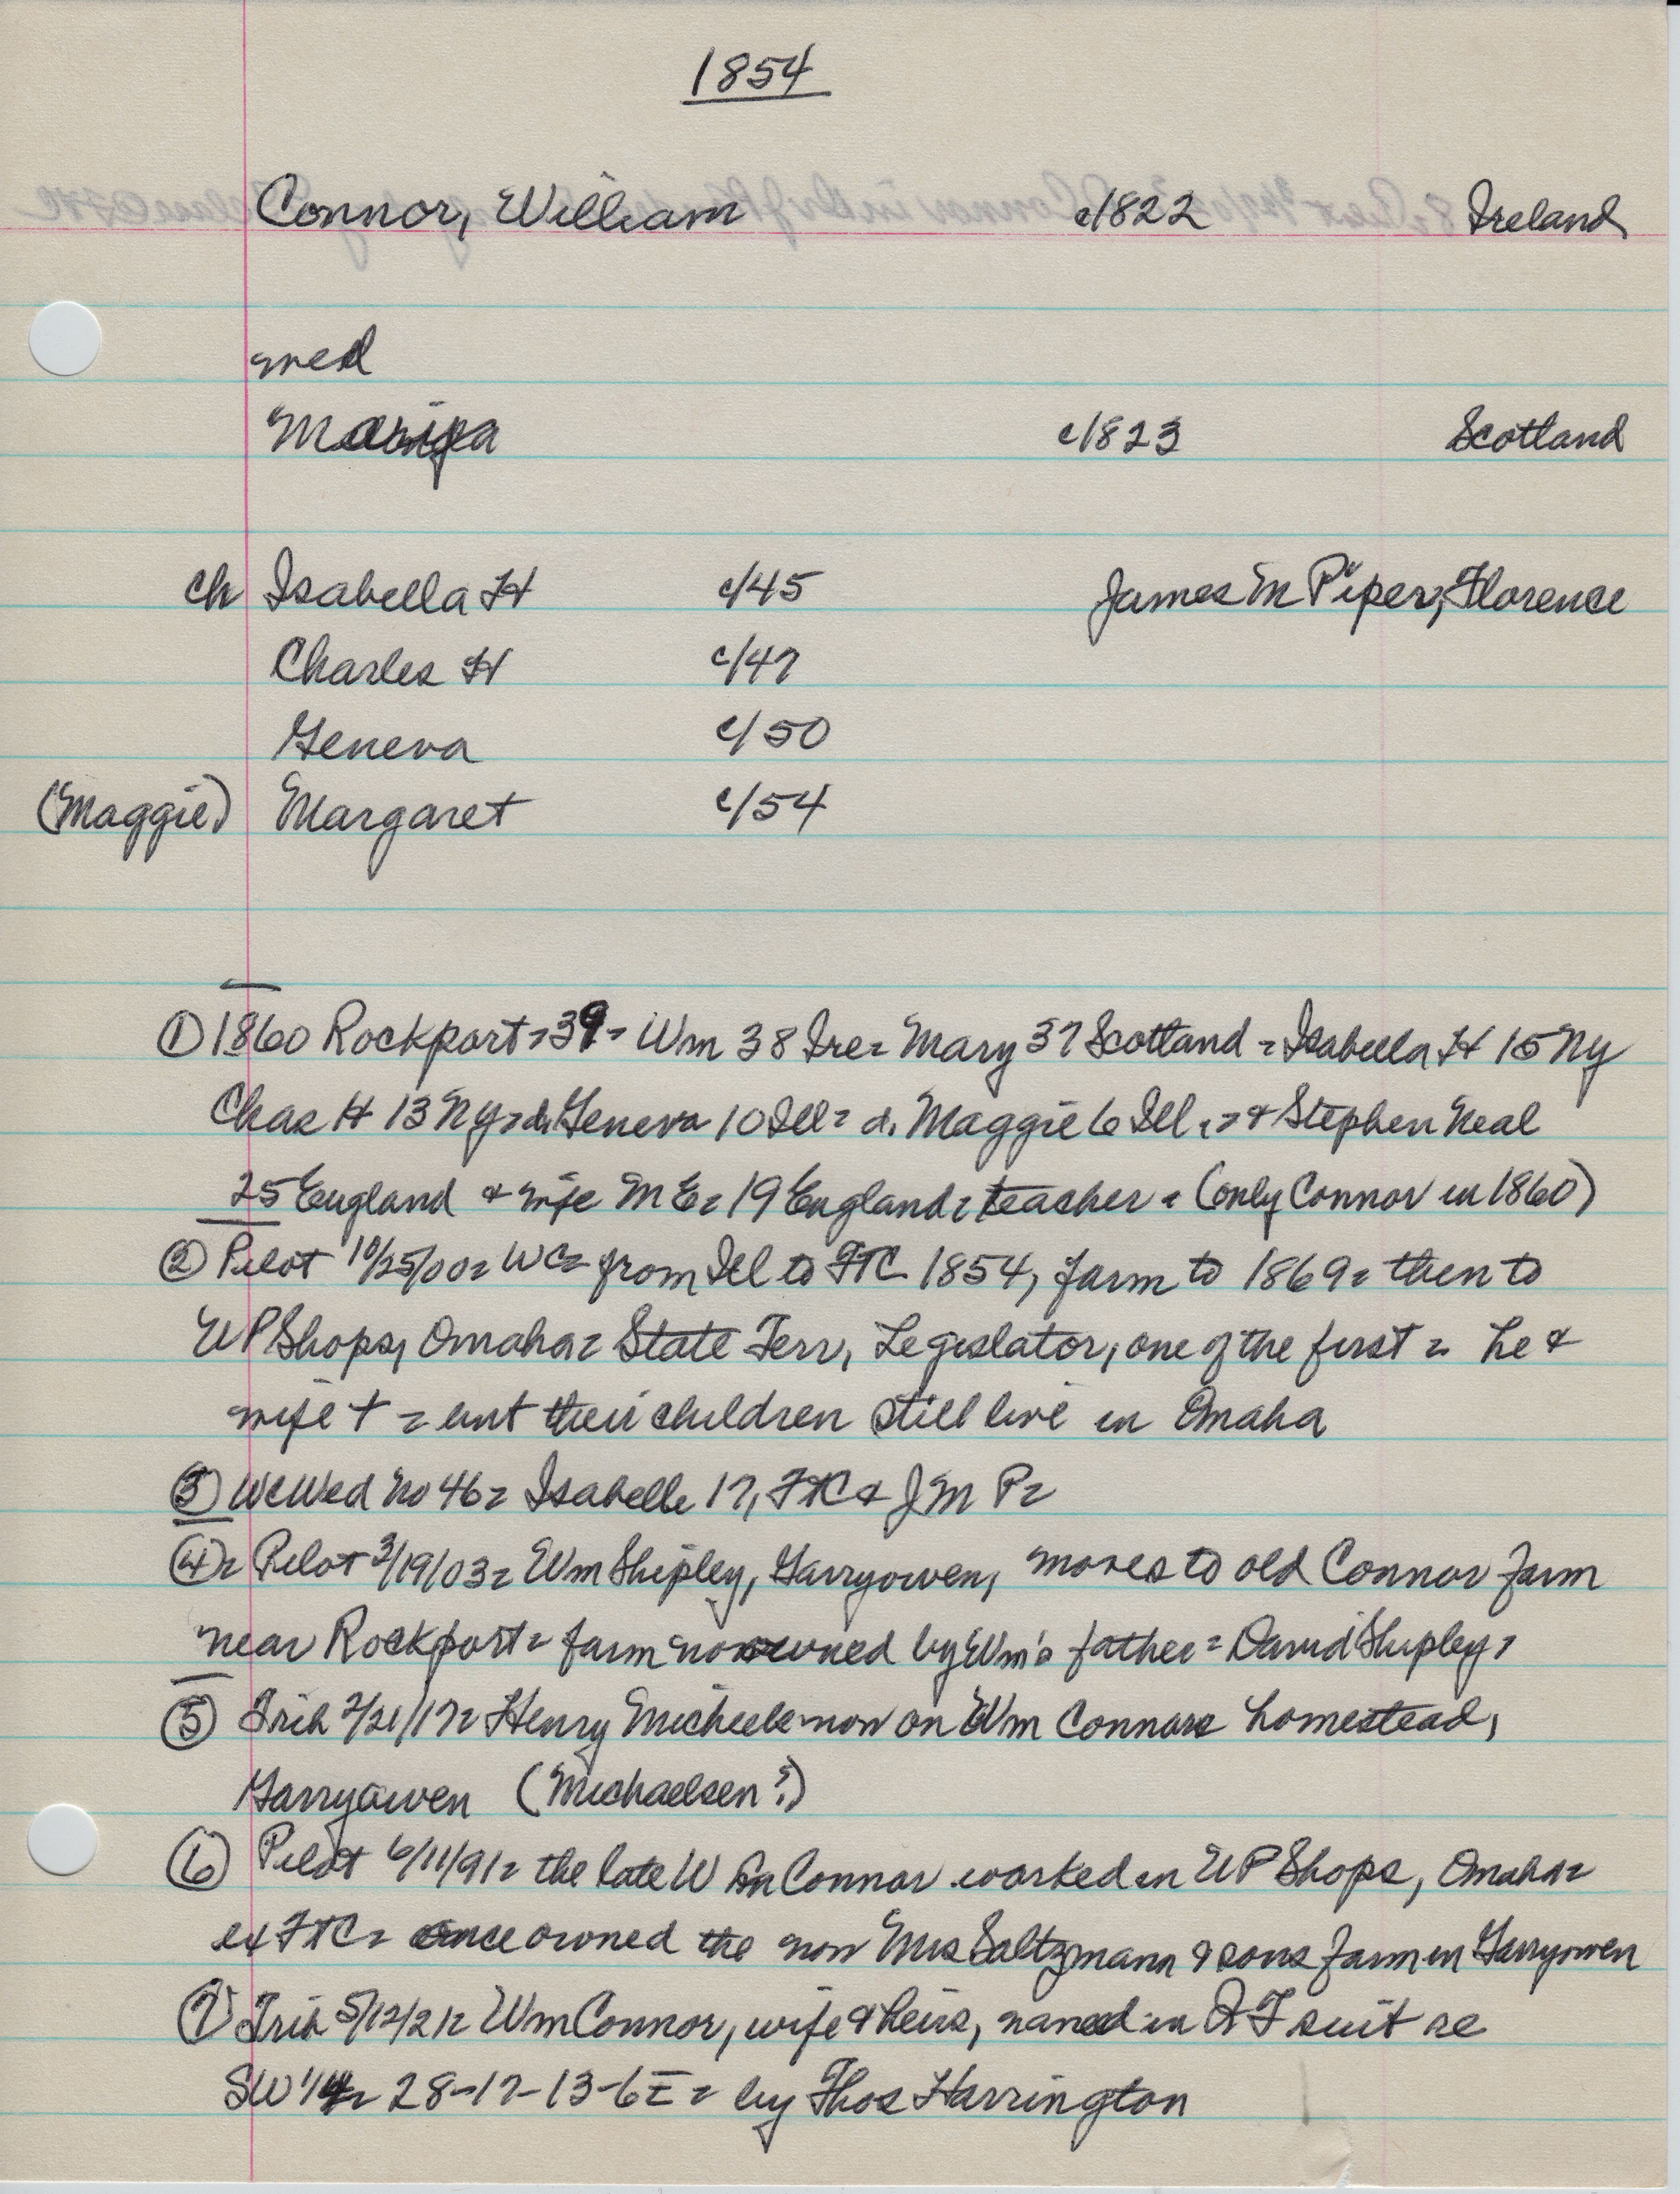 1854
Connor, William c/1822 Ireland
med
c/1823 Scotland
ch Isabella H c/45 James M Piper, Florence
Charles H c/47
Geneva c/50
(Maggie) Margaret c/54
① 1860 Rockport = 39 = Wm 38 Ire = Mary 37 Scotland = Isabella H 15 Ny
Chas H 13 Ny = d. Geneva 10 Ill = d. Maggie 6 Ill. = & Stephen Neal
25 England & wife M E = 19 England = teacher = (only Connor in 1860)
② Pilot 10/25/00 = WC = from Ill to FTC 1854, farm to 1869 = then to
UP Shops, Omaha = State Terr, Legislator, one of the first = he &
wife + = but their children still live in Omaha
③ WC Wed No 46 = Isabelle 17, FTC & J M P =
④ = Pilot 3/19/03 = Wm Shipley, Garryowen, moves to old Connor farm
near Rockport = farm now owned by Wm's father = David Shipley =
⑤ Trib 2/21/17 = Henry now on Wm Connors homestead,
Garryowen (Michaelsen?)
⑥ Pilot 6/11/91 = the late Wm Connor worked in UP Shops, Omaha =
ex FTC = once owned the now Mrs Saltzmann & sons farm in Garryowen
⑦ Trib 5/12/21 = Wm Connor, wife & heirs, named in QT suit re
SW 1/4 = 28-17-13-6E = by Thos Harrington